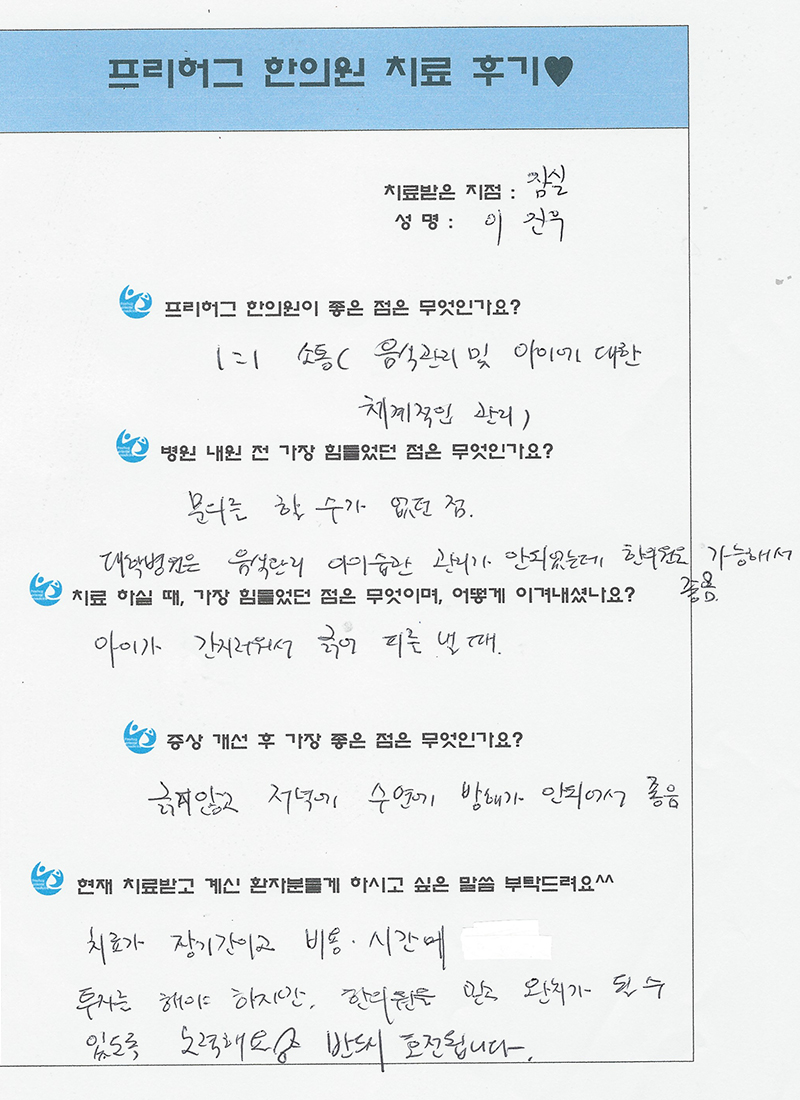 프리허그 한의원 치료 후기♥
치료받은 지점 : 잠실
성 명 : 이 건우
프리허그 한의원이 좋은 점은 무엇인가요?
1:1 소통( 음식관리 및 아이에 대한
체계적인 관리)
병원 내원 전 가장 힘들었던 점은 무엇인가요?
문의를 할 수가 없던 점.
대학병원은 음식관리 아이습관 관리가 안되었는데 한의원은 가능해서
좋음.
치료 하실 때, 가장 힘들었던 점은 무엇이며, 어떻게 이겨내셨나요?
아이가 간지러워서 긁어 피를 낼 때.
증상 개선 후 가장 좋은 점은 무엇인가요?
긁지않고 저녁에 수면에 방해가 안되어서 좋음
현재 치료받고 계신 환자분들게 하시고 싶은 말씀 부탁드려요^^
치료가 장기간이고 비용·시간에
투자는 해야 하지만, 한의원을 믿고 완치가 될 수
있도록 노력해요 반드시 호전됩니다.